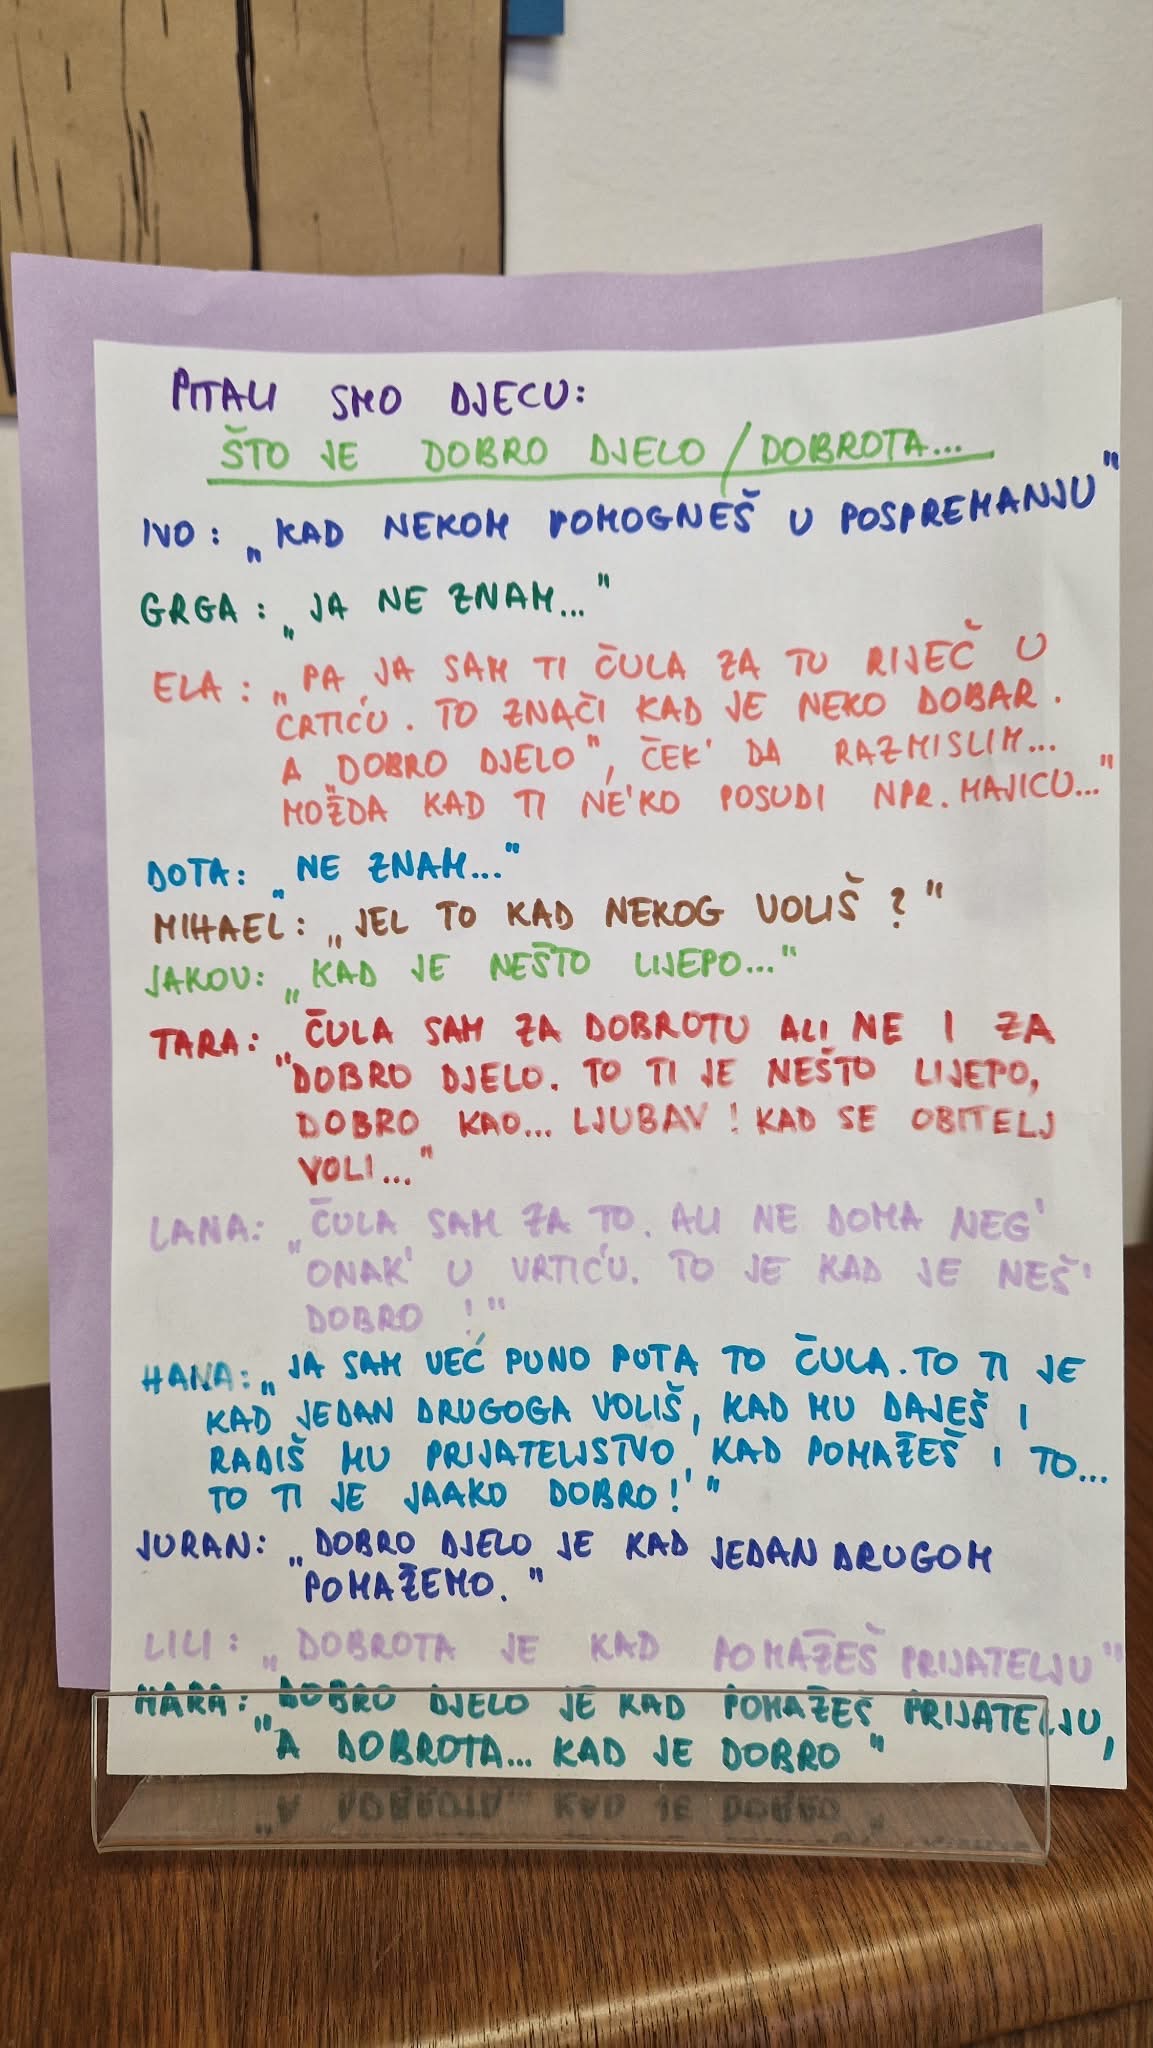 PITALI SMO DJECU:
ŠTO JE DOBRO DJELO / DOBROTA...
IVO: „KAD NEKOM POMOGNEŠ U POSPREMANJU"
GRGA: „JA NE ZNAM..."
ELA: „PA JA SAM TI ČULA ZA TU RIJEČ U
CRTIĆU. TO ZNAČI KAD JE NEKO DOBAR.
A „DOBRO DJELO", ČEK' DA RAZMISLIM...
MOŽDA KAD TI NE'KO POSUDI NPR. MAJICU..."
DOTA: „NE ZNAM..."
MIHAEL: „JEL TO KAD NEKOG VOLIŠ?"
JAKOV: „KAD JE NEŠTO LIJEPO..."
TARA: „ČULA SAM ZA DOBROTU ALI NE I ZA
DOBRO DJELO. TO TI JE NEŠTO LIJEPO,
DOBRO KAO... LJUBAV! KAD SE OBITELJ
VOLI..."
LANA: „ČULA SAM ZA TO. ALI NE DOMA NEG'
ONAK' U VRTIĆU. TO JE KAD JE NEŠ'
DOBRO!"
HANA: „JA SAM VEĆ PUNO PUTA TO ČULA. TO TI JE
KAD JEDAN DRUGOGA VOLIŠ, KAD MU DAJEŠ I
RADIŠ MU PRIJATELJSTVO, KAD POMAŽEŠ I TO...
TO TI JE JAAKO DOBRO!'"
JURAN: „DOBRO DJELO JE KAD JEDAN DRUGOM
POMAŽEMO."
LILI: „DOBROTA JE KAD POMAŽEŠ PRIJATELJU"
MARA: „DOBRO DJELO JE KAD POMAŽEŠ PRIJATELJU,
A DOBROTA... KAD JE DOBRO"